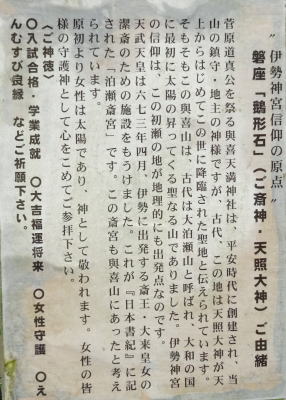 〝伊勢神宮信仰の原点〟
磐座「鵝形石」(ご斎神・天照大神)ご由緒
菅原道真公を祭る與喜天満神社は、平安時代に創建され、当
山の鎮守・地主の神様ですが、古代、この地は天照大神が天
上からはじめてこの世に降臨された聖地と伝えられています。
そもそもこの與喜山は、古代は大泊瀬山と呼ばれ、大和の国
に最初に太陽の昇ってくる聖なる山でありました。伊勢神宮
の信仰は、この初瀬の地が地理的にも出発点なのです。
天武天皇は六七三年四月、伊勢に出発する斎王・大来皇女の
潔斎のための施設をもうけました。これが、『日本書紀』に記
された「泊瀬斎宮」です。この斎宮も與喜山にあったと考え
られています。
原初より女性は太陽であり、神として敬われます。女性の皆
様の守護神として心をこめてご参拝下さい。
〈ご神徳〉
〇入試合格・学業成就 〇大吉福運将来 〇女性守護 〇え
んむすび良縁 などご祈願下さい。